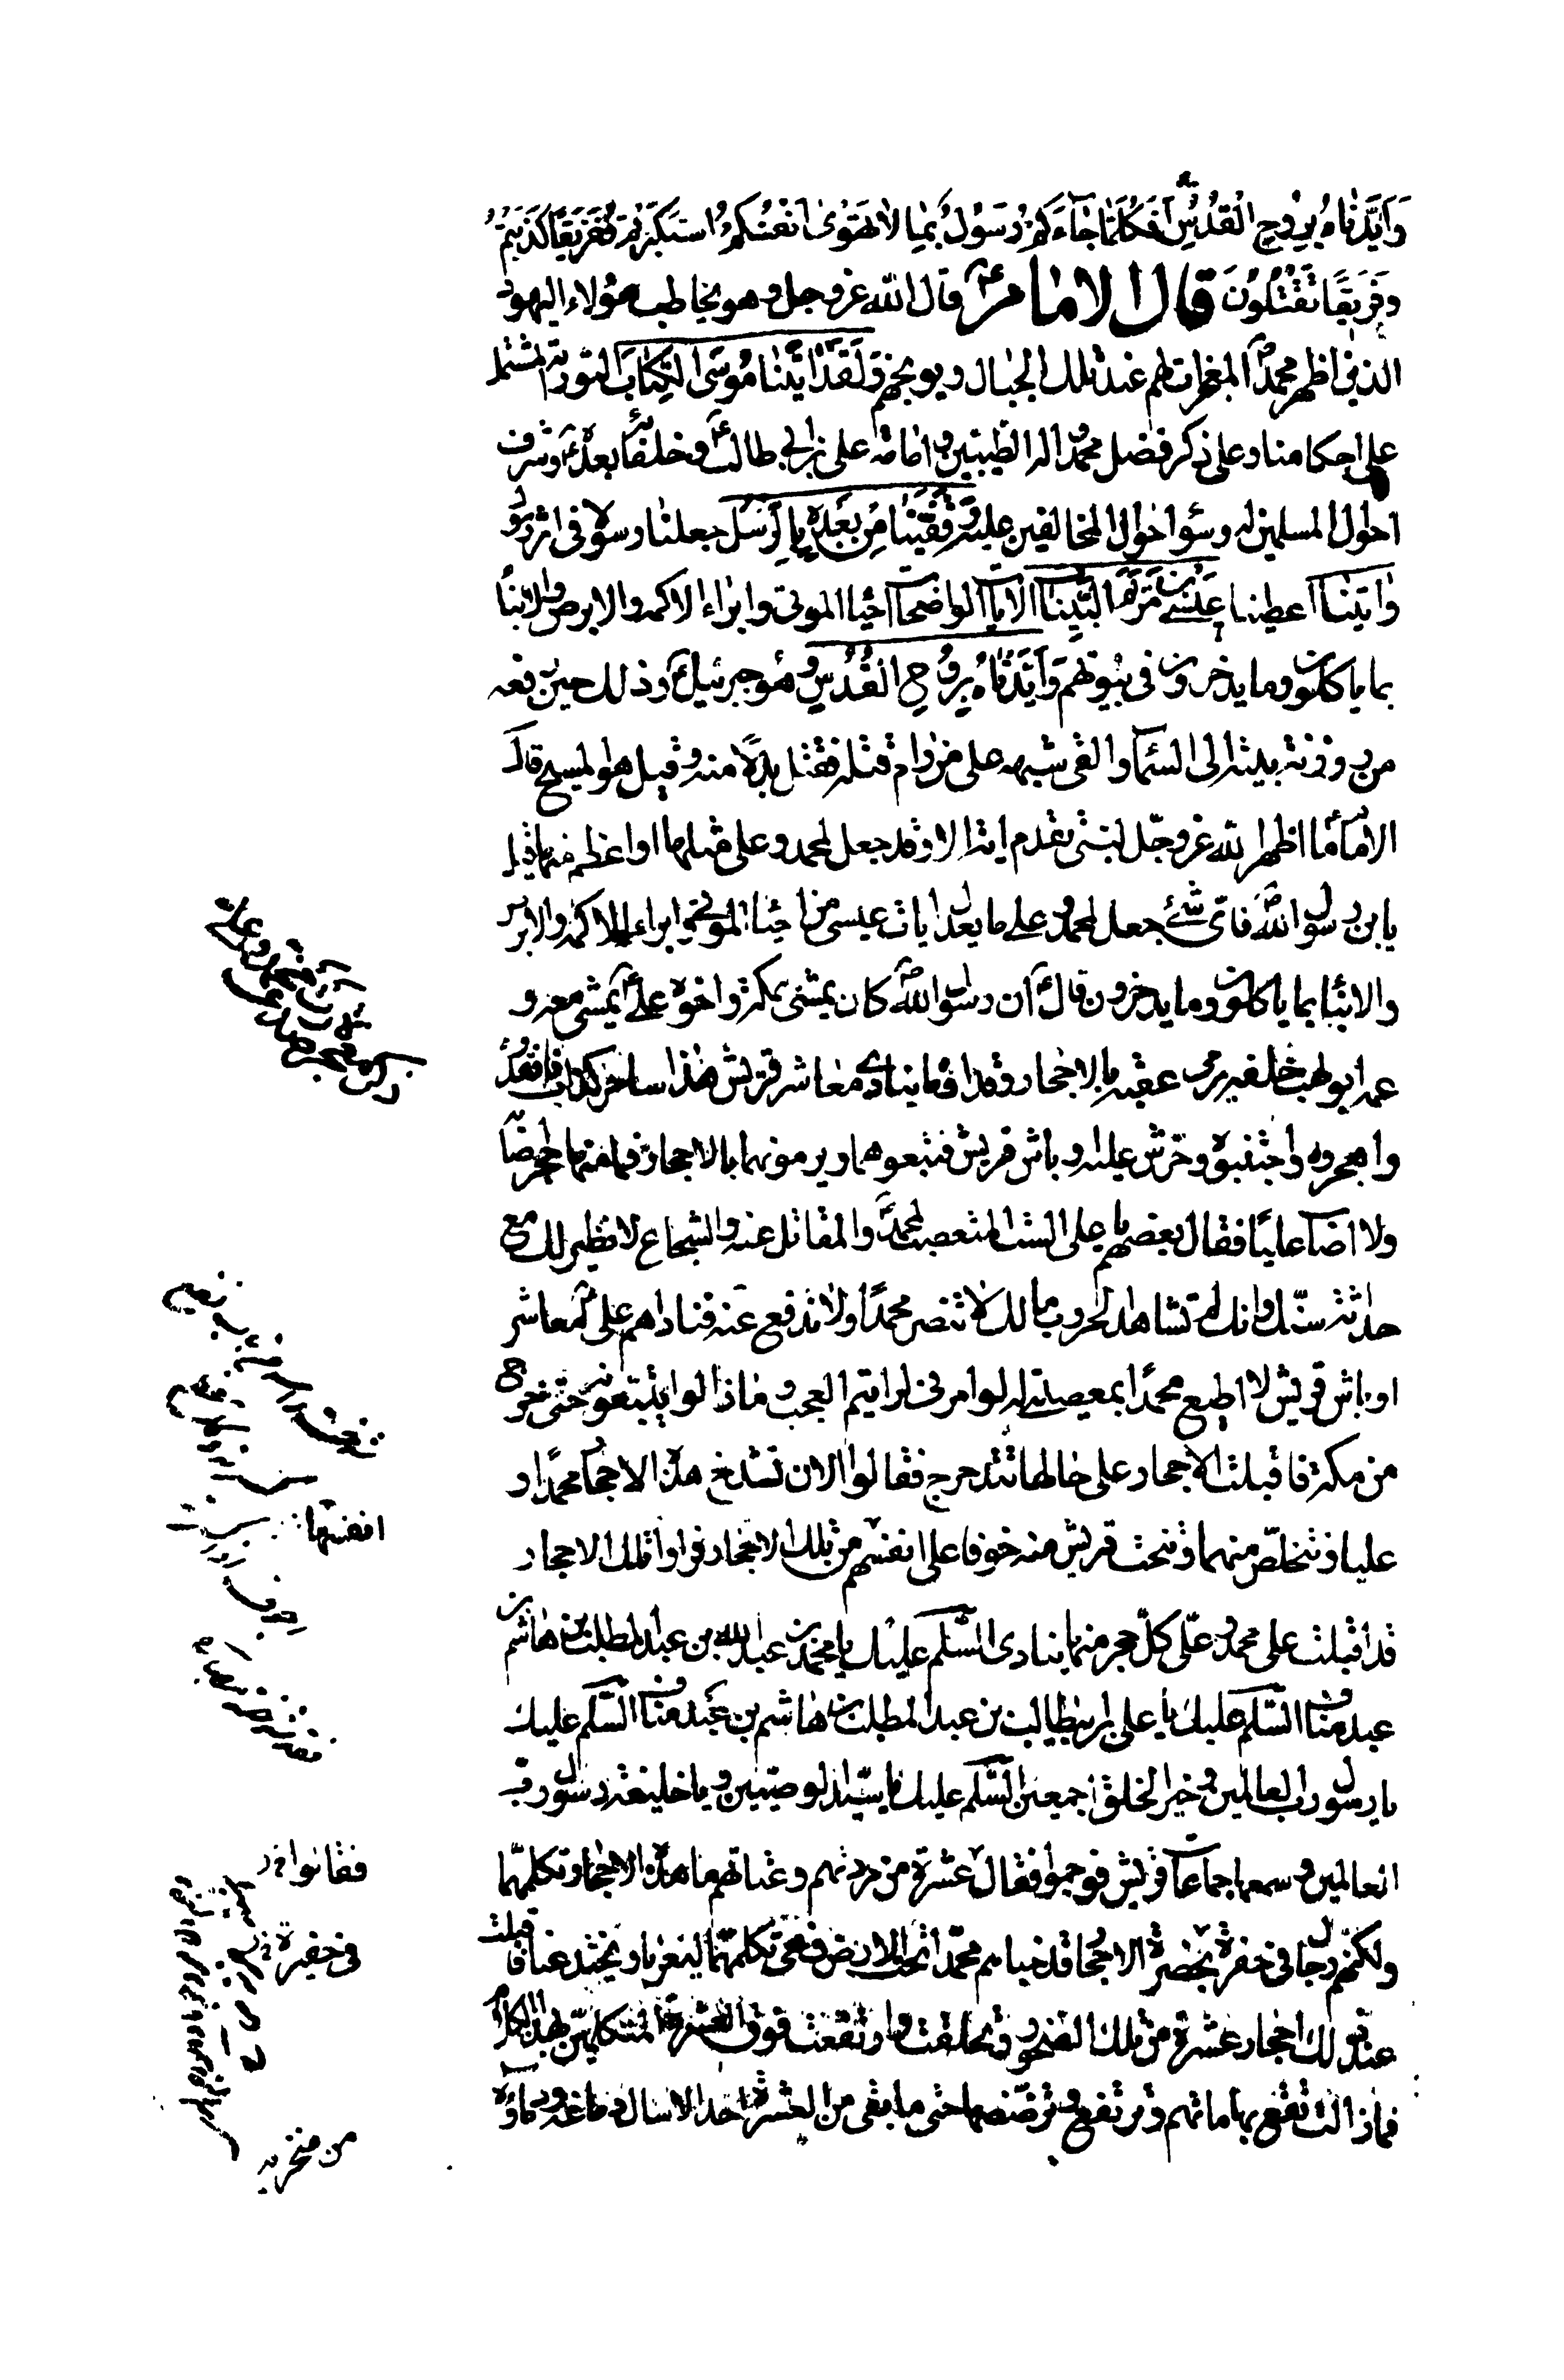 وَاَيَّدْنٰاهُ بِرُوحِ الْقُدُسِ اَفَكُلَّمٰا جٰاءَكُمْ رَسُولٌ بِمٰا لٰا تَهْوٰى اَنْفُسُكُمُ اسْتَكْبَرْتُمْ فَفَرِيقًا كَذَّبْتُمْ
وَفَرِيقًا تَقْتُلُونَ قال الامام ع قال الله عز و جل و هو يخاطب هؤلاء اليهود
الذين اظهر محمد ص المعجزات لهم عند تلك الجبال و يوبخهم وَلَقَدْ اٰتَيْنٰا مُوسَى الْكِتٰابَ التورية المشتمل
على احكامنا و على ذكر فضل محمد و اله الطيبين و امامة على بن ابى طالب ع و خلفائه بعده و شرف
احوال المسلمين له و سؤ احوال المخالفين عليه وَقَفَّيْنٰا مِنْ بَعْدِهِ بِالرُّسُلِ جعلنا رسولا فى اثر رسول
وَاٰتَيْنٰا اعطينا عِيسَى بْنَ مَرْيَمَ الْبَيِّنٰاتِ الايات الواضحات احياء الموتى و ابراء الاكمه و الابرص و الانباء
بما ياكلون و ما يدخرون فى بيوتهم وَاَيَّدْنٰاهُ بِرُوحِ الْقُدُسِ و هو جبرئيل ع و ذلك حين رفعه
من روزنة بيته الى السماء و القى شبهه على من رام قتله فقتل بدلا منه و قيل هو المسيح قال
الامام ما اظهر الله عز و جل لنبى تقدم اية الا و قد جعل لمحمد و على مثلها او اعظم منها قيل
يابن رسول الله فاى شئ جعل لمحمد و على ما يعدل ايات عيسى من احياء الموتى و ابراء الاكمه و الابرص
و الانباء بما ياكلون و ما يدخرون قال ع ان رسول الله ص كان يمشى بمكة و اخوه على ع يمشى معه و
عمه ابو لهب خلفه يرمى عقبه بالاحجار و قد ادماه ينادى معاشر قريش هذا ساحر كذاب فافقدوه
و اهجروه و اجتنبوه و حرش عليه اوباش قريش فتبعوهما و يرمونهما بالاحجار فما منها حجر اصابه
و لا اصاب عليا فقال بعضهم يا على الست المتعصب لمحمد و المقاتل عنه و الشجاع لا نظير لك مع
حداثة سنك و انك لم تشاهد الحروب ما لك لا تنصر محمدا و لا تدفع عنه فناداهم على ع معاشر
اوباش قريش لا اطيع محمدا بمعصيتى له لو امرنى لرايتم العجب و ما زالوا يتبعونه حتى خرج
من مكة فاقبلت الاحجار على حالها تتدحرج فقالوا الان تشدخ هذه الاحجار محمدا و
عليا و نتخلص منهما و تنحت قريش منه خوفا على انفسهم من تلك الاحجار فراوا تلك الاحجار
قد اقبلت على محمد و على كل حجر منها ينادى السلم عليك يا محمد بن عبد الله بن عبد المطلب بن هاشم بن
عبد مناف السلم عليك يا على بن ابيطالب بن عبد المطلب بن هاشم بن عبد مناف السلم عليك
يا رسول رب العالمين و خير الخلق اجمعين السلم عليك يا سيد الوصيين و يا خليفة رسول رب
العالمين و سمعها جماعات قريش فوجموا فقال عشرة من مردتهم و عتاتهم ما هذه الاحجار تكلمهما
ولكنهم رجال فى حفرة بحضرة الاحجار قد خباهم محمد تحت الارض فهى تكلمهما ليغرنا و يختدعنا فاقبلت
عند ذلك احجار عشرة من تلك الصخور و تحلقت و ارتفعت فوق العشرة المتكلمين بهذا الكلام
فما زالت تقع بهاماتهم و ترتفع و ترضضها حتى ما بقى من العشرة احد الا سال دماغه و دماؤه
فقالوا
فى حفيرة
من منخريه